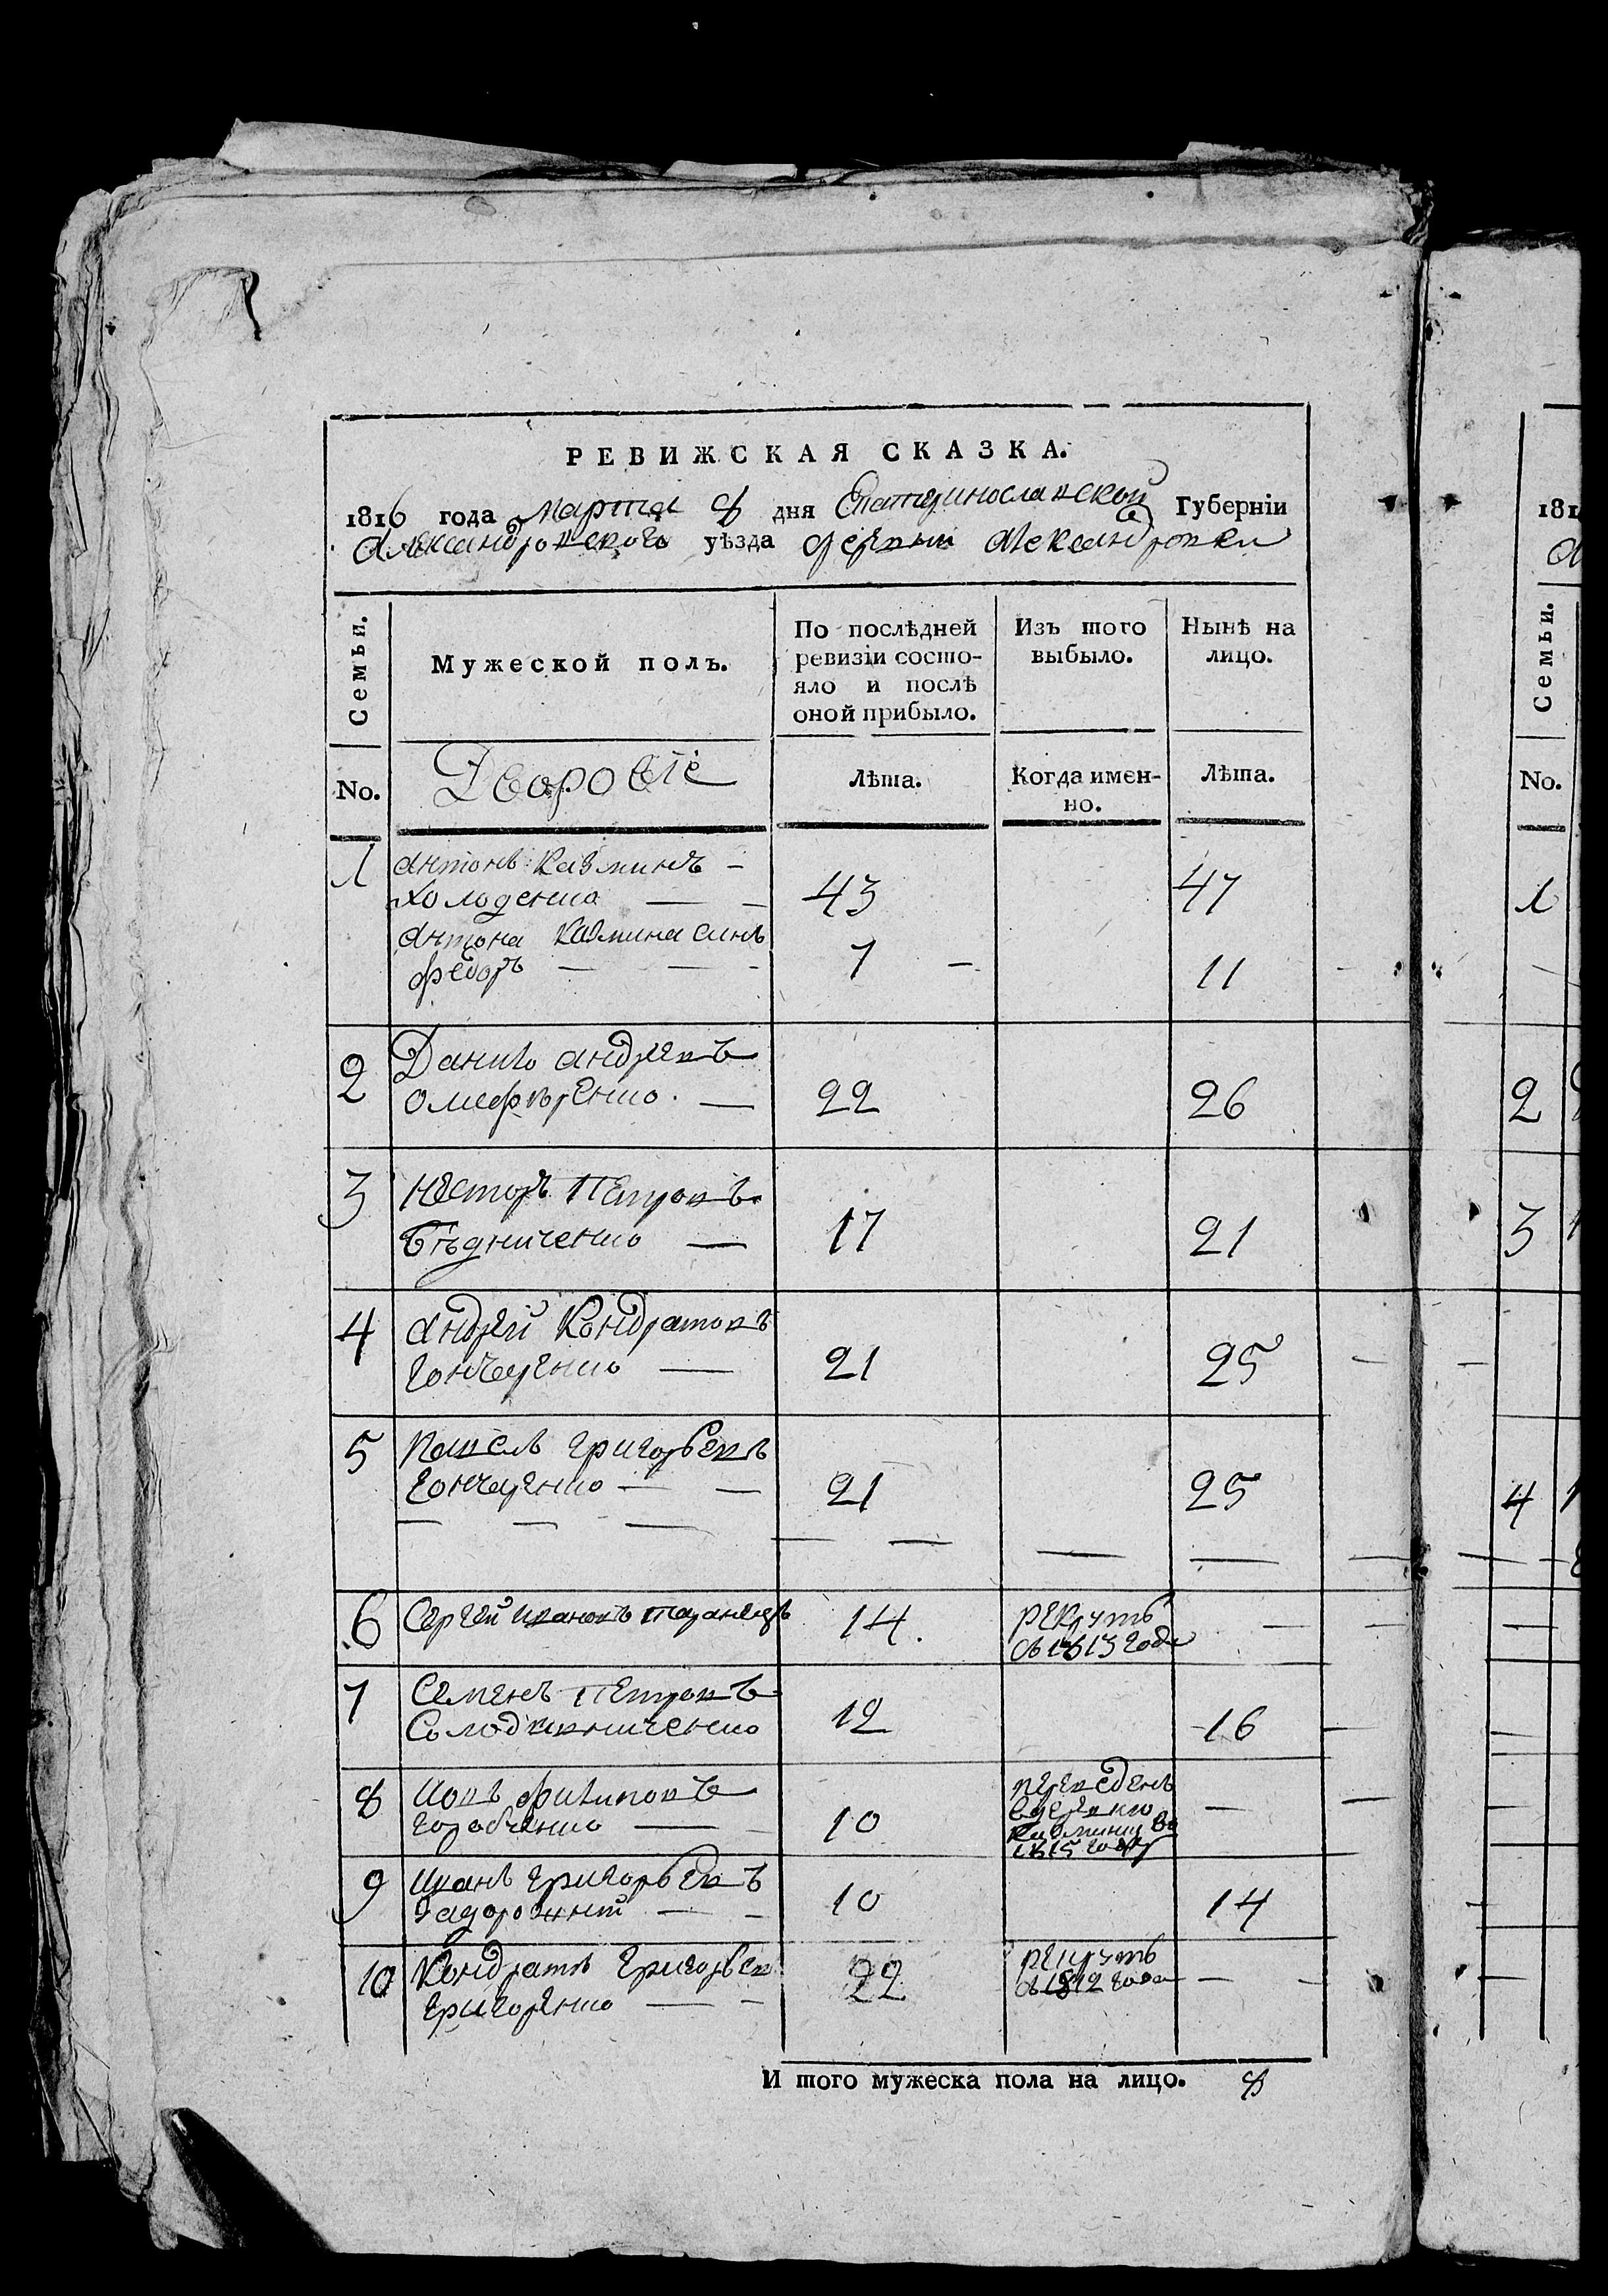 РЕВИЖСКАЯ СКАЗКА.
1816 года марта 8 дня Екатеринославской Губерніи
Александровского уѣзда деревни Александровки
Семьи.
Мужеской полъ.
По послѣдней
ревизіи состо-
яло и послѣ
оной прибыло.
Изъ того
выбыло.
Нынѣ на
лицо.
No.
Дворовіе
Лѣта.
Когда имен-
но.
Лѣта.
1 Антонъ Казминъ —
Холоденко — — 43 47
Антона Казмина синъ
Федоръ — — - 7 — 11
2 Данило Андреевъ
Олеференко. — 22 26
3 Несторъ Петровъ
Бѣдниченко — 17 21
4 Андрей Кондратовъ
Гончаренко — 21 25
5 Павелъ Григорьевъ
Гончаренко — — 21 25
6 Сергей Ивановъ Таранецъ 14. рекрутъ
съ 1813 года —
7 Семенъ Петровъ
Солодовниченко 12 16
8 Иовъ Филиповъ
Горобченко — 10 переведенъ
вдеревню
Казминку во
1815 году —
9 Иванъ Григорьевъ
Задорожній — - 10 14
10 Кондратъ Григорьев
Григоренко — - 22 рекрутъ
съ 1812 года — -
И того мужеска пола на лицо. 8
181
Семьи.
No.
1
2
3
4